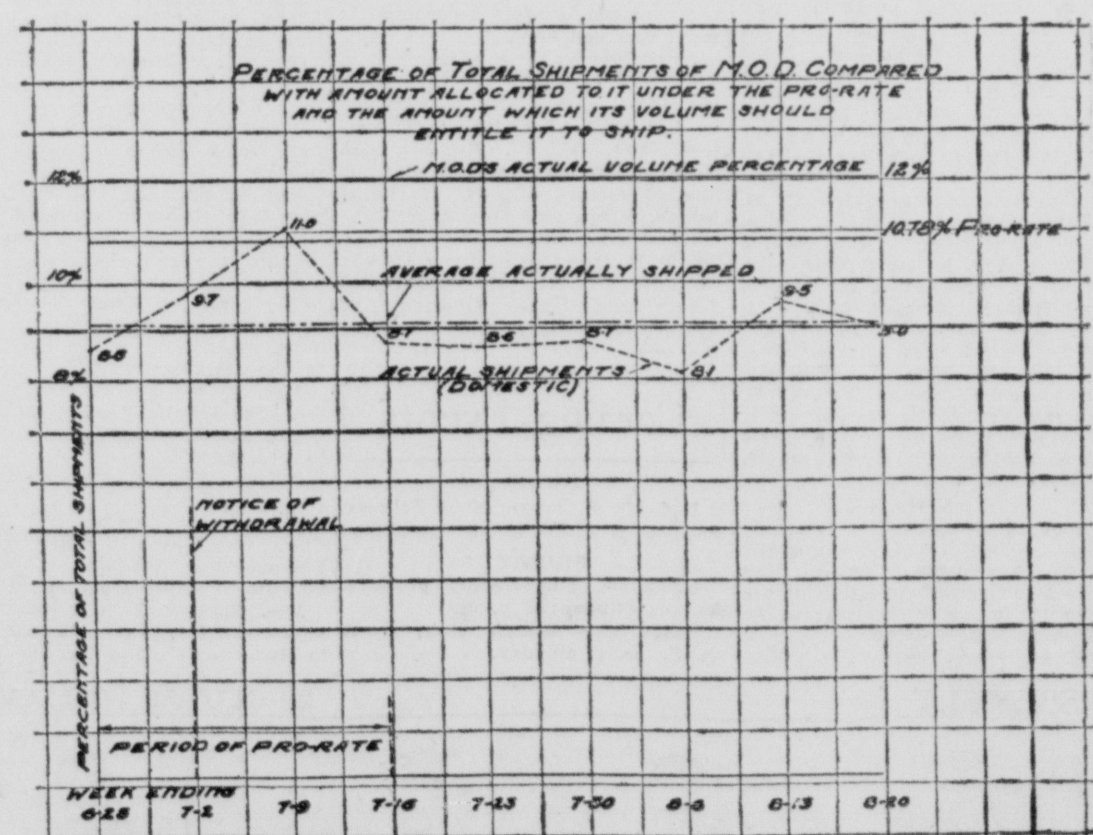 PERCENTAGE OF TOTAL SHIPMENTS OF M.O.D. COMPARED
WITH AMOUNT ALLOCATED TO IT UNDER THE PRO-RATE
AND THE AMOUNT WHICH ITS VOLUME SHOULD
ENTITLE IT TO SHIP.
M.O.D'S ACTUAL VOLUME PERCENTAGE
12%
12%
11.0
10.78% PRO-RATE
10%
AVERAGE ACTUALLY SHIPPED
9.7
9.5
8.7
8.6
8.7
9.0
8.6
8%
ACTUAL SHIPMENTS
(DOMESTIC)
8.1
PERCENTAGE OF TOTAL SHIPMENTS
NOTICE OF
WITHDRAWAL
PERIOD OF PRO-RATE
WEEK ENDING
7-2
7-9
7-16
7-23
7-30
8-6
8-13
8-20